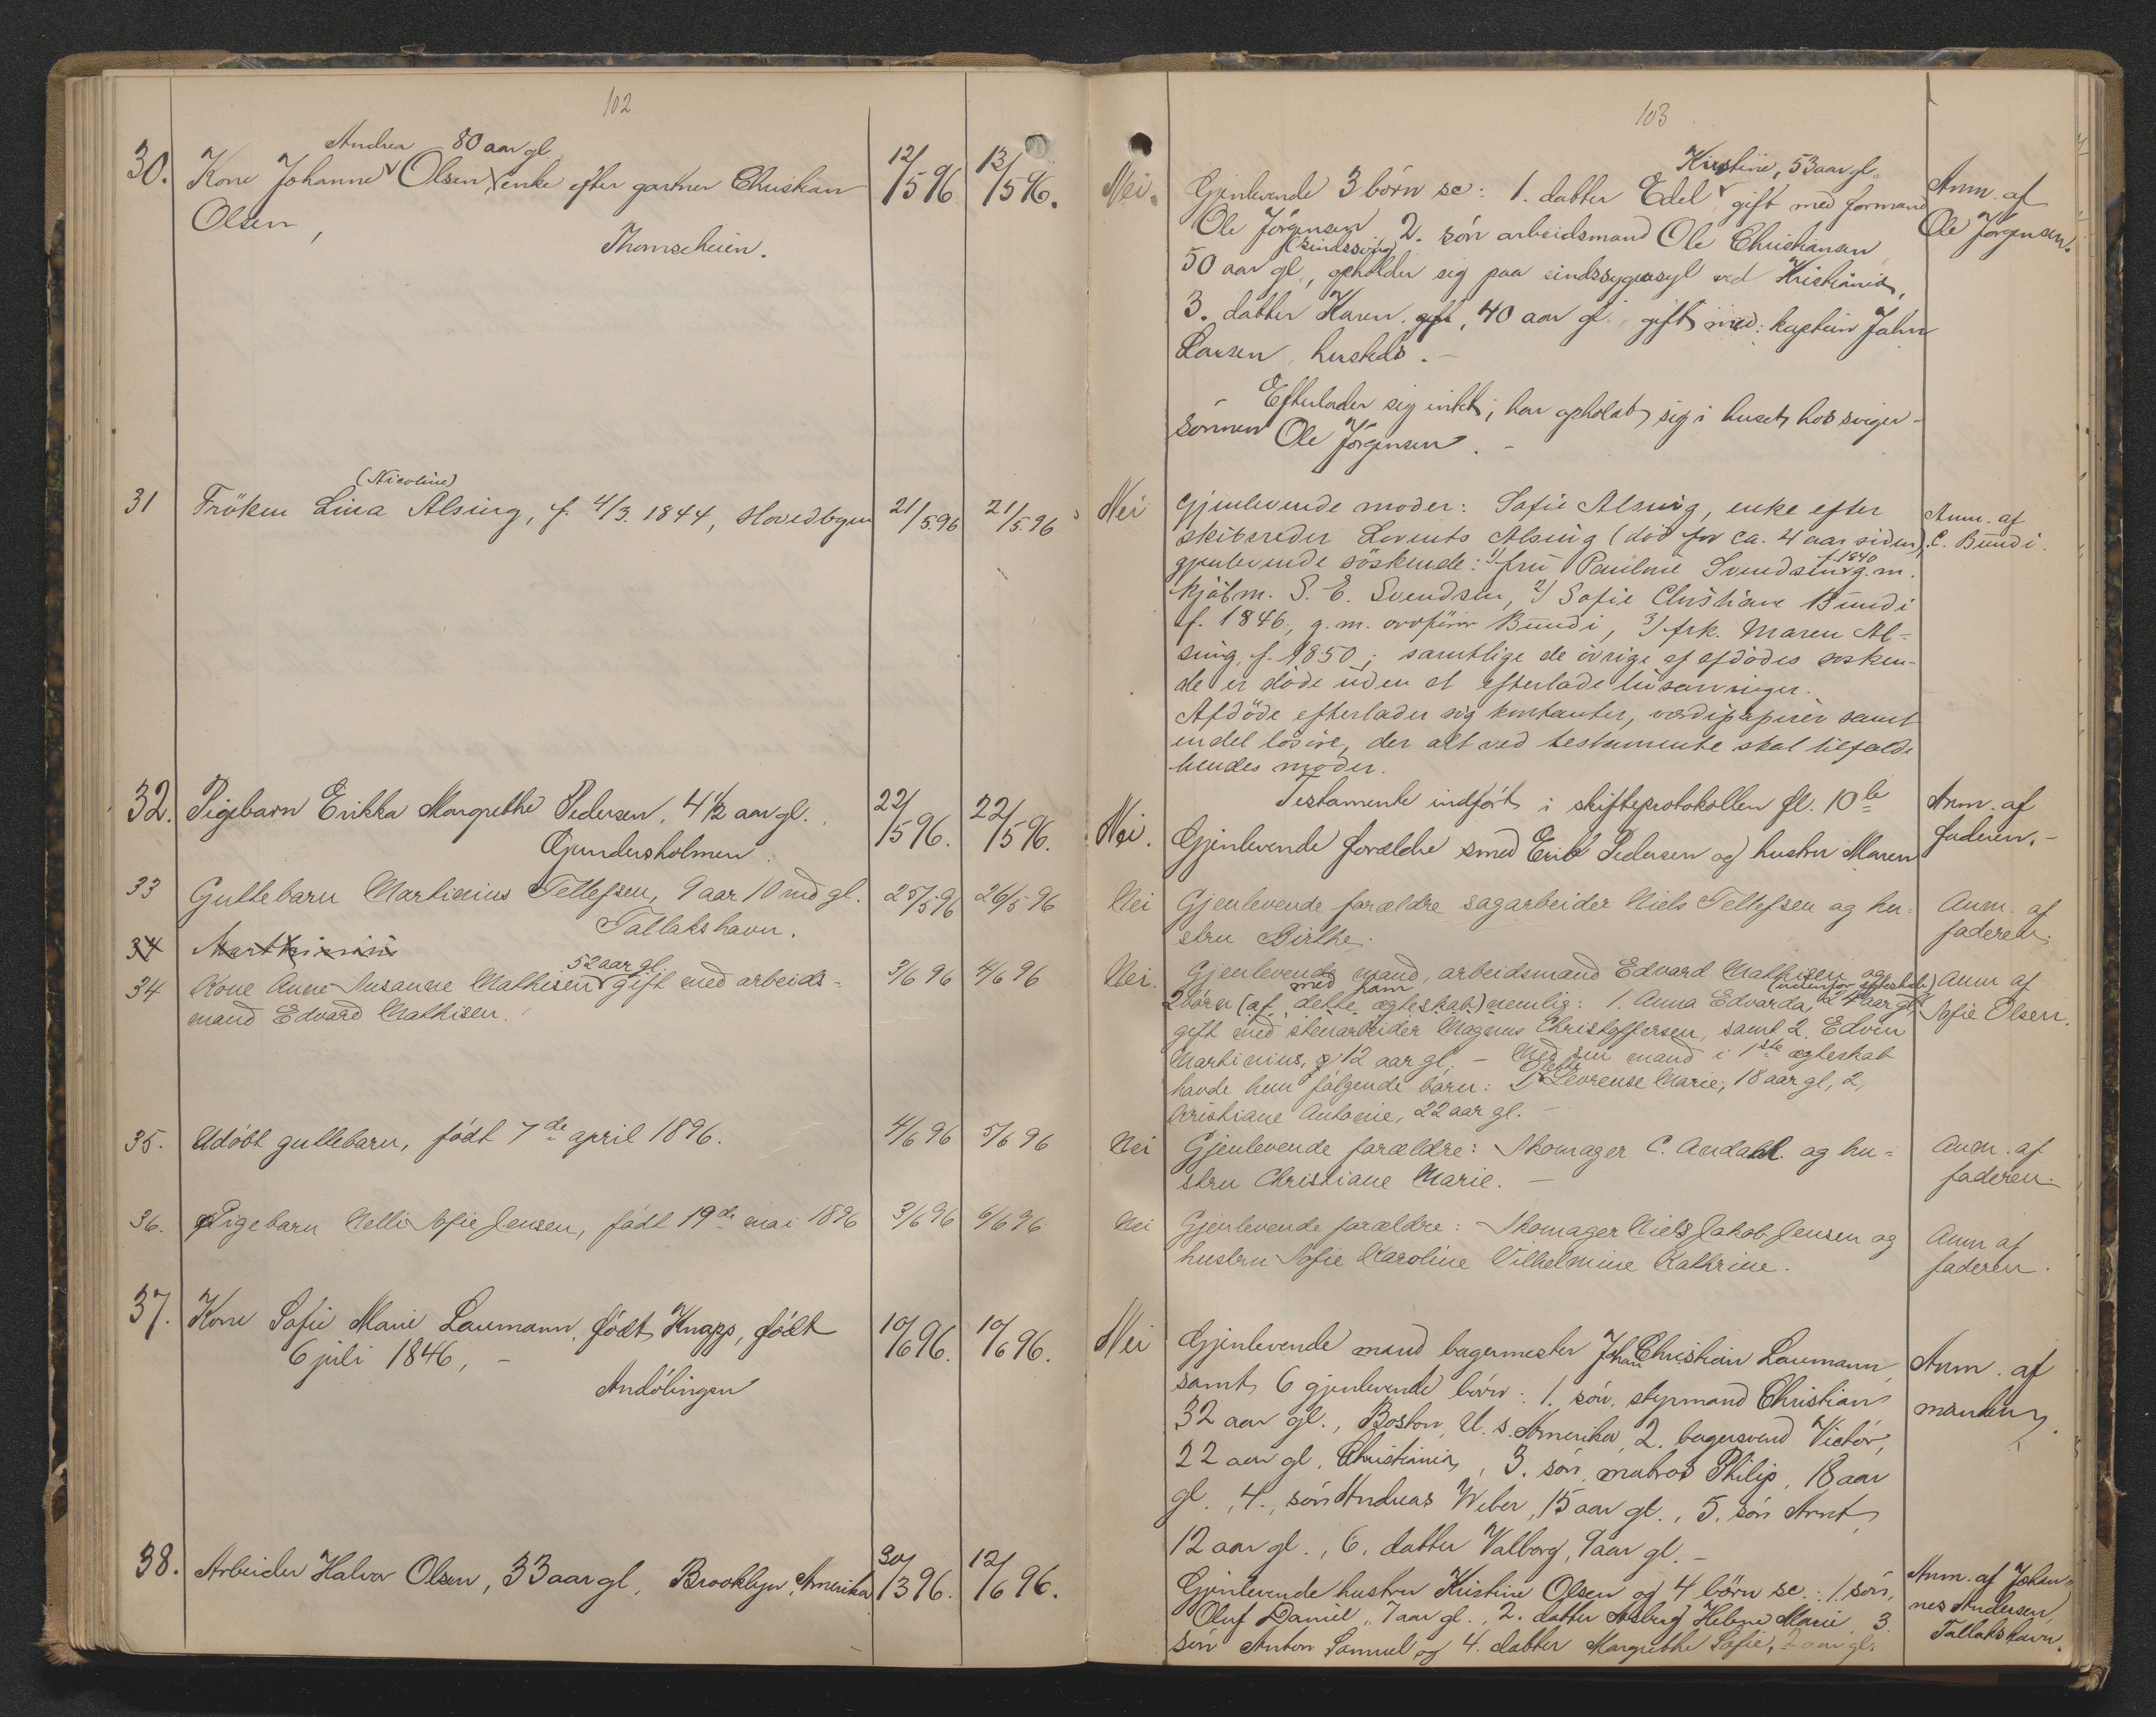 102
30. Kone Johanne Andrea Olsen, 80 aar gl enke efter gartner Christian 12/5 96 13/5 96.
Olsen,
Thomsheien.
31 Fröken Lina (Nicoline) Alsing, f. 4/3. 1844, Hovedbgen 21/5.96 21/5.96
32. Pigebarn Erikka Margrethe Pedersen, 4 1/2 aar gl. 22/5 96. 22/5 96.
Gundersholmen.
33 Guttebarn Martinius Tellefsen, 9 aar 10 md gl. 25/5 96 26/5 96
Tallakshavn.
34 Kone Anne Susanne Mathisen 52 aar gl gift med arbeids- 3/6 96 4/6 96
mand Edvard Mathisen.
35. Udöbt guttebarn, födt 7de april 1896. 4/6 96 5/6 96
36. Pigebarn Nelli Sofie Jensen, födt 19de mai 1896 3/6 96 6/6 96
37. Kone Sofie Marie Laumann, födt Knapp, födt 10/6 96. 10/6 96.
6 juli 1846, -
Andölingen
38. Arbeider Halvor Olsen, 33 aar gl, Brooklyn, Amerika 30/3 96. 12/6 96.
103
Nei. Gjenlevende 3 börn sc: 1. datter Edel Kirstine, 53 aar gl. gift med formand Anm. af
Ole Jörgensen, 2. sön arbeidsmand Ole Christiansen Ole Jörgensen.
(sindssvag)
50 aar gl, opholder sig paa sindssygeasyl ved Kristiania,
3. datter Karen, 40 aar gl, gift med: kaptein Jahn
Larsen, hersteds. -
Efterlader sig intet, har opholdt sig i huset hos sviger-
sönnen Ole Jörgensen. -
Nei Gjenlevende moder: Sofie Alsing, enke efter Anm. af
skibsreder Lorents Alsing (död for ca. 4 aar siden), C. Bundi.
gjenlevende söskende: 1) fru Pauline Svendsen f. 1840 g. m.
kjöbm. S. E. Svendsen, 2) Sofie Christiane Bundi
f. 1846, g. m. Bundi, 3) frk. Maren Al-
sing, f. 1850; samtlige de övrige af afdödes sösken-
de er döde uden at efterlade livsarvinger.
Afdöde efterlader sig kontanter, værdipapirer samt
endel lösöre, der alt ved testamente skal tilfalde
hendes moder.
Testamente indfört i skifteprotokollen fl. 10 b
Nei. Gjenlevende forældre smed Erik Pedersen og hustru Maren Anm. af
faderen. -
Nei Gjenlevende forældre sagarbeider Niels Tellefsen og hu- Anm. af
stru Birthe. faderen.
Nei. Gjenlevende mand, arbeidsmand Edvard Mathisen og Anm af
2 börn (af dette ægteskab) med ham nemlig: 1. Anna Edvarda, (udenfor ægteskab) 24 aar gl, Sofie Olsen.
gift med stenarbeider Magnus Christoffersen, samt 2. Edvin
Martinius, 12 aar gl. - Med sin mand i 1ste ægteskab
havde hun fölgende börn: 1, Lovense Marie, 18 aar gl, 2,
Kristiane Antonie, 22 aar gl. -
Nei Gjenlevende forældre: Skomager C. Andahl og hu- Anm. af
stru Christiane Marie. - faderen.
Nei Gjenlevende forældre: Skomager Niels Jakob Jensen og Anm af
hustru Sofie Karoline Vilhelmine Kathrine. faderen.
Nei Gjenlevende mand bagermester Johan Christian Laumann, Anm. af
samt 6 gjenlevende börn: 1. sön, styrmand Christian manden.
32 aar gl., Boston, U. S. Amerika, 2. bagersvend Victor,
22 aar gl, Christiania, 3. sön, matros Philip, 18 aar
gl., 4., sön Andreas Weber, 15 aar gl., 5. sön Arnt,
12 aar gl., 6. datter Valborg, 9 aar gl. -
Gjenlevende hustru Kristine Olsen og 4 börn sc.: 1. sön, Anm. af Johan-
Oluf Daniel, 7 aar gl., 2. datter Helene Marie, 3. nes Andersen,
sön Anton Samuel og 4. datter Margrethe Sofie, 2 aar gl. Tallakshavn.